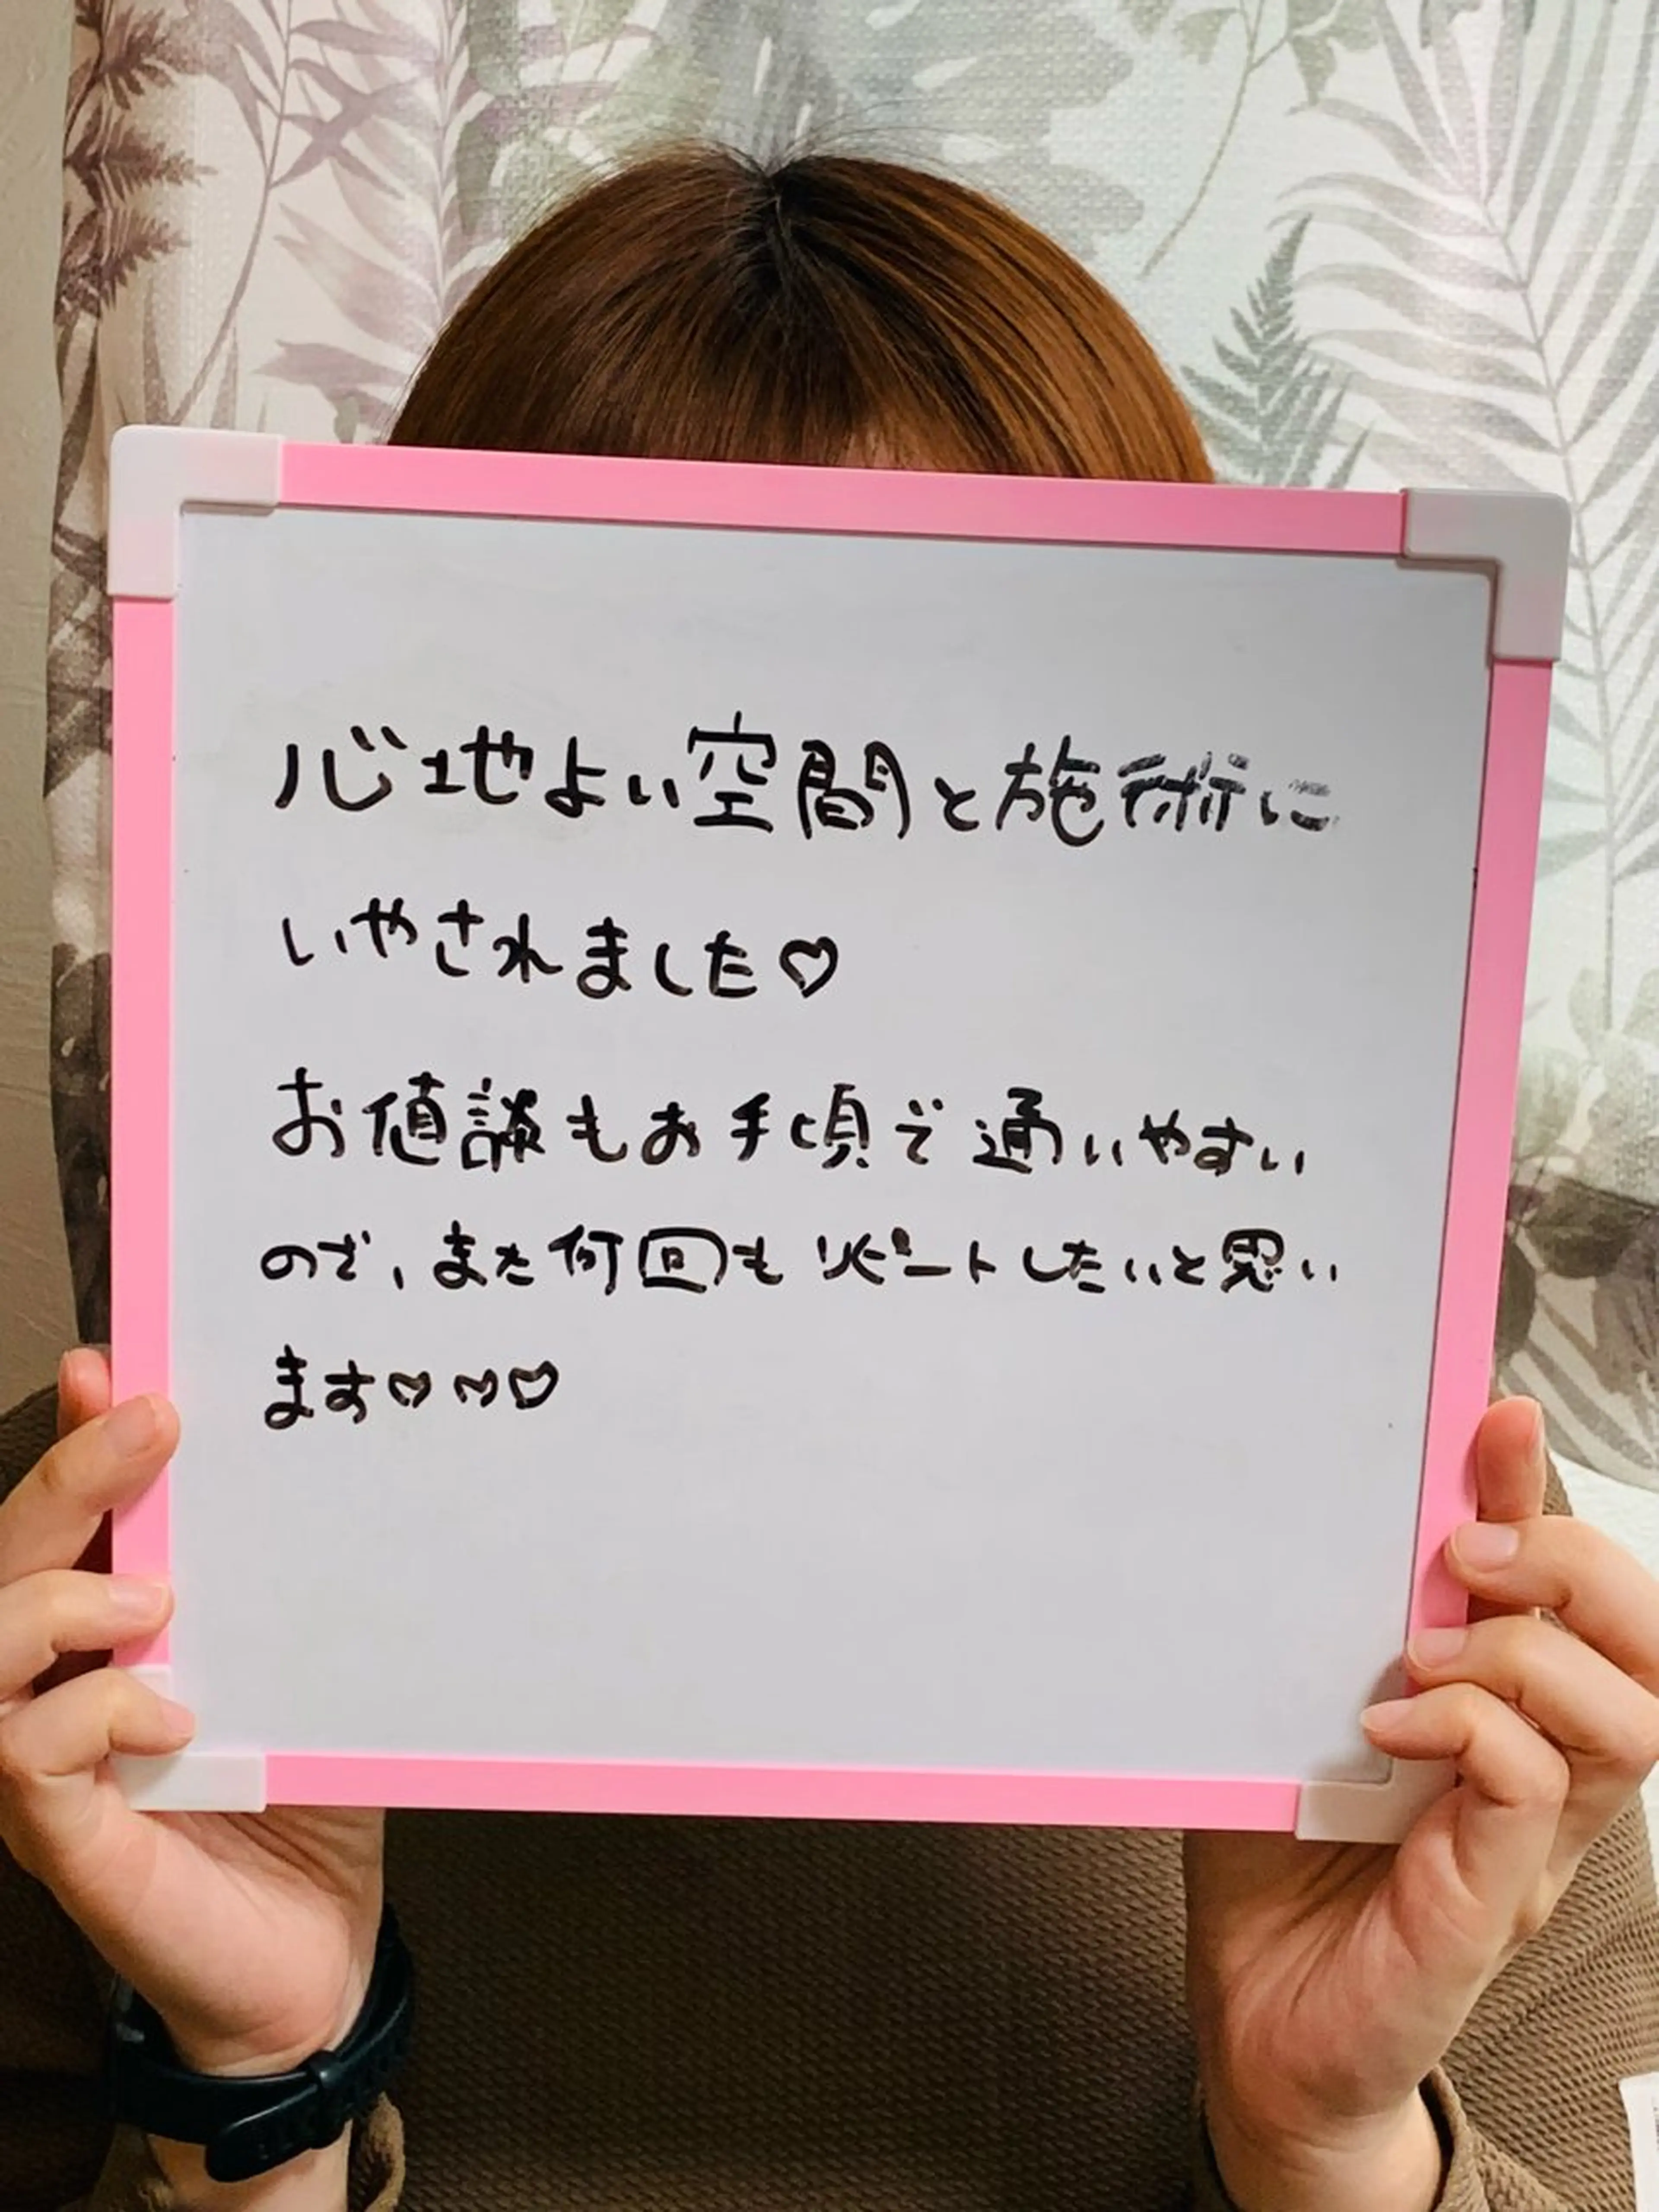 心地よい空間と施術に
いやされました♡
お値談もお手頃で通いやすい
ので、また何回もリピートしたいと思い
ます♡♡♡